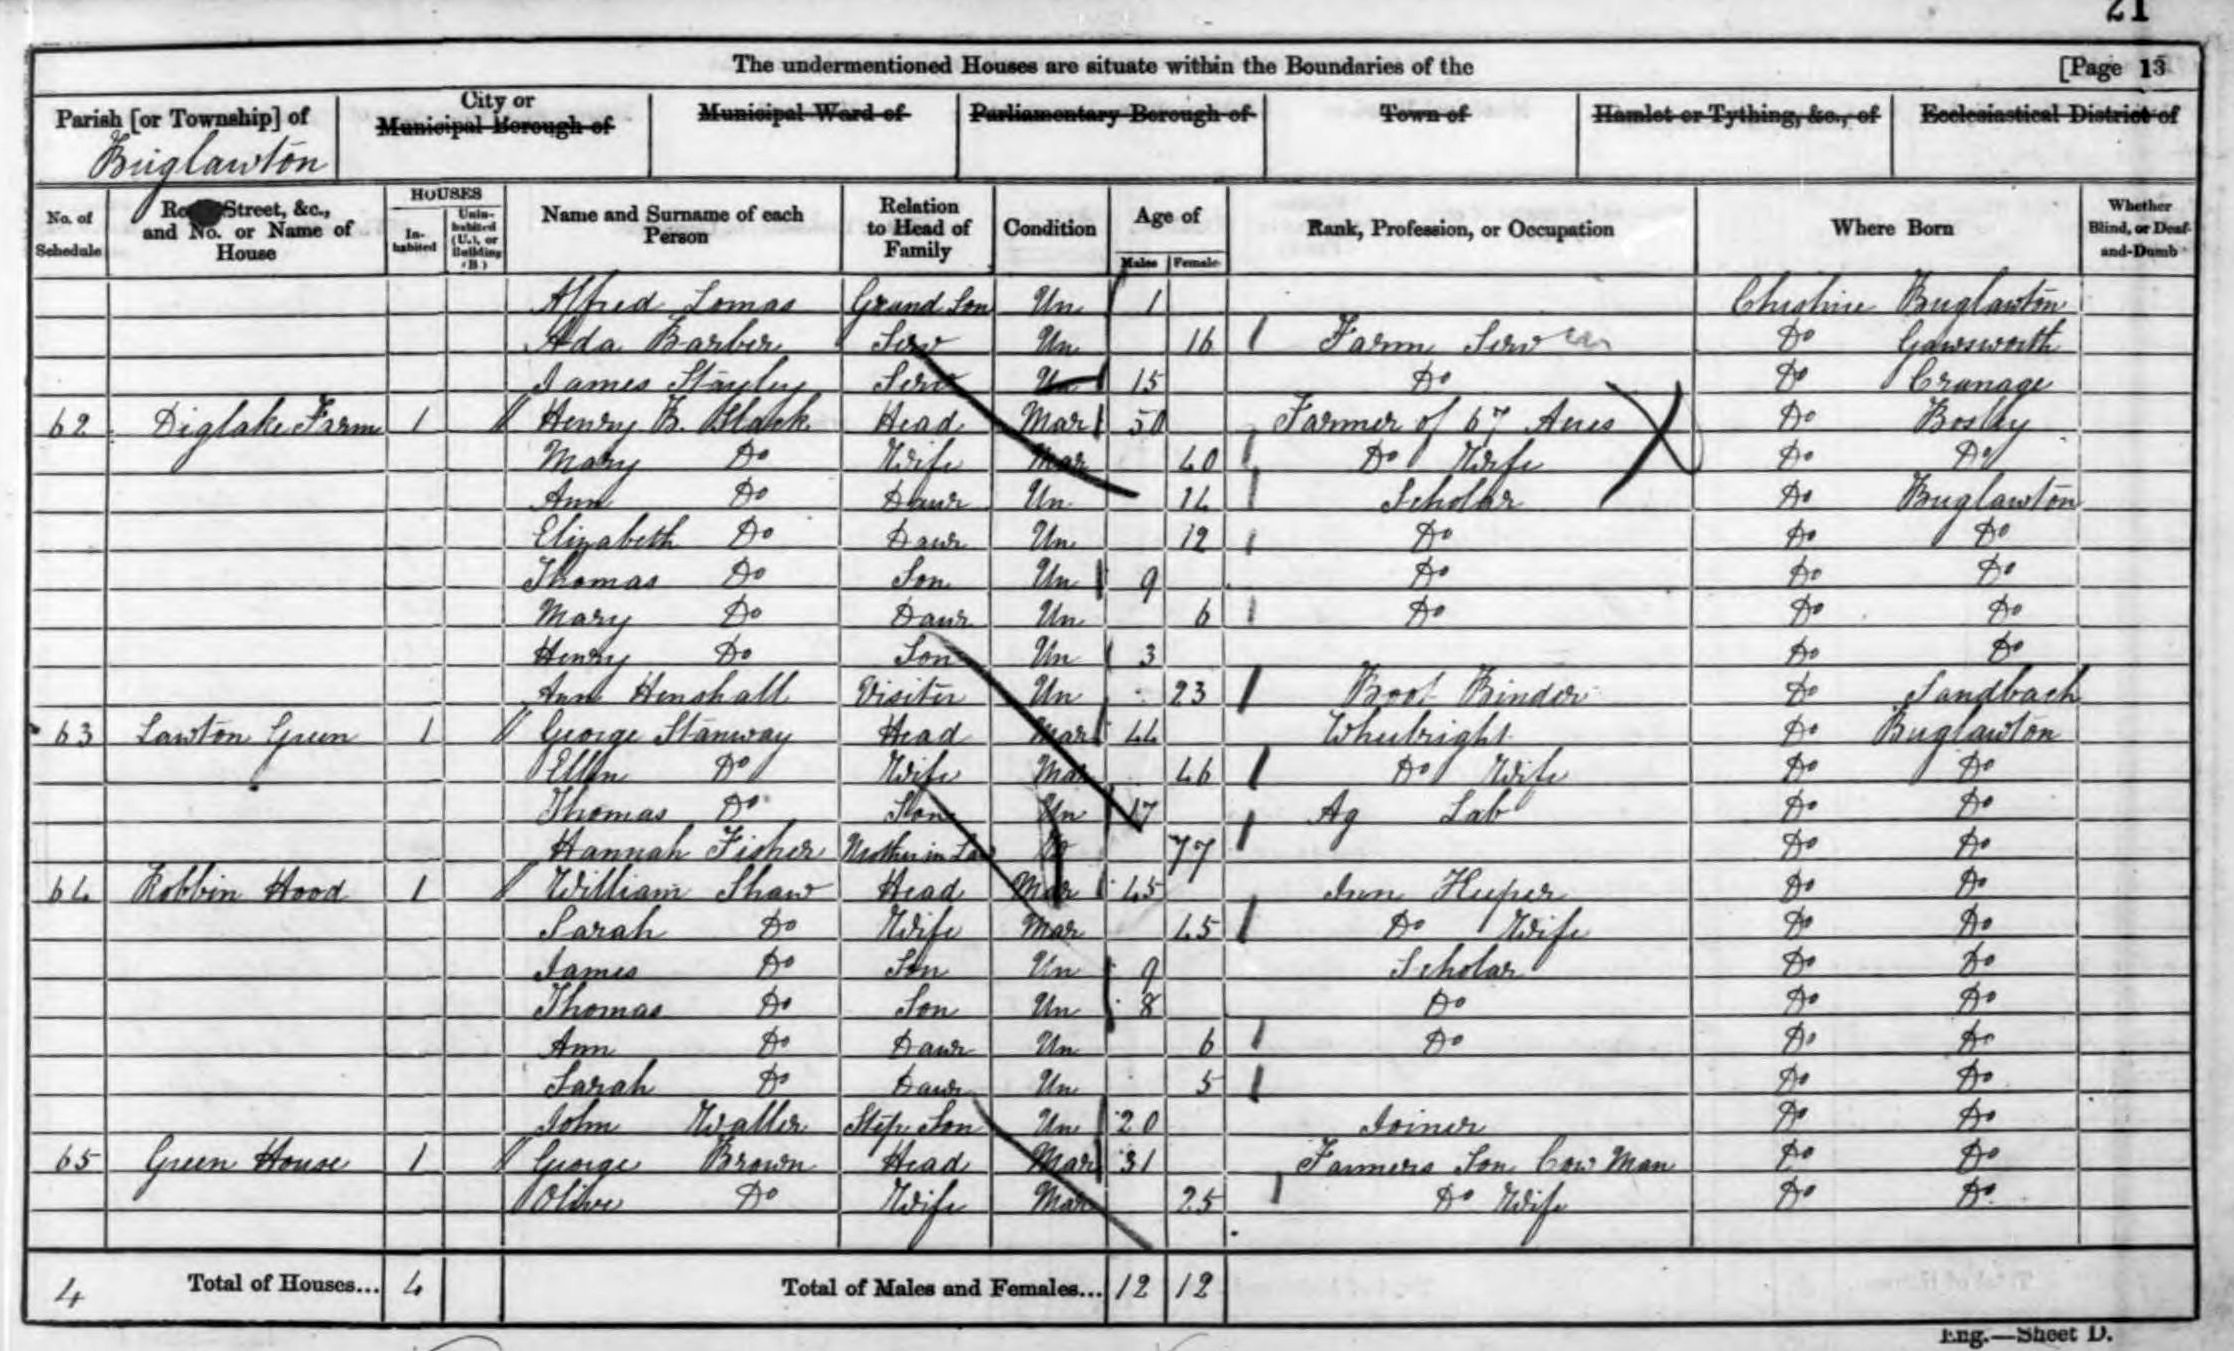 21
The undermentioned Houses are situate within the Boundaries of the [Page 13
Parish [or Township] of City or Municipal Borough of Municipal Ward of Parliamentary Borough of Town of Hamlet or Tything, &c., of Ecclesiastical District of
Buglawton
No. of Schedule Street, &c., and No. or Name of House HOUSES In-habited Unin-habited (U.), or Building (B.) Name and Surname of each Person Relation to Head of Family Condition Age of Males Female Rank, Profession, or Occupation Where Born Whether Blind, or Deaf-and-Dumb
Alfred Lomas Grand Son Un 1 Cheshire Buglawton
Ada Barber Serv Un 16 Farm Serv Do Gawsworth
James Stayley Serv Un 15 Do Do Cranage
62 Diglake Farm 1 Henry B. Black Head Mar 50 Farmer of 67 Acres Do Bosley
Mary Do Wife Mar 40 Do Wife Do Do
Ann Do Daur Un 14 Scholar Do Buglawton
Elizabeth Do Daur Un 12 Do Do Do
Thomas Do Son Un 9 Do Do Do
Mary Do Daur Un 6 Do Do Do
Henry Do Son Un 3 Do Do
Ann Henshall Visiter Un 23 Boot Binder Do Sandbach
63 Lawton Green 1 George Stanway Head Mar 44 Whelright Do Buglawton
Ellen Do Wife Mar 46 Do Wife Do Do
Thomas Do Son Un 17 Ag Lab Do Do
Hannah Fisher Mother in Law 77 Do Do
64 Robbin Hood 1 William Shaw Head Mar 45 Inn Keeper Do Do
Sarah Do Wife Mar 45 Do Wife Do Do
James Do Son Un 9 Scholar Do Do
Thomas Do Son Un 8 Do Do Do
Ann Do Daur Un 6 Do Do Do
Sarah Do Daur Un 5 Do Do
John Waller Step Son Un 20 Joiner Do Do
65 Green House 1 George Brown Head Mar 31 Farmers Son Cow Man Do Do
Olive Do Wife Mar 25 Do Wife Do Do
4 Total of Houses... 4 Total of Males and Females... 12 12
Eng.—Sheet D.